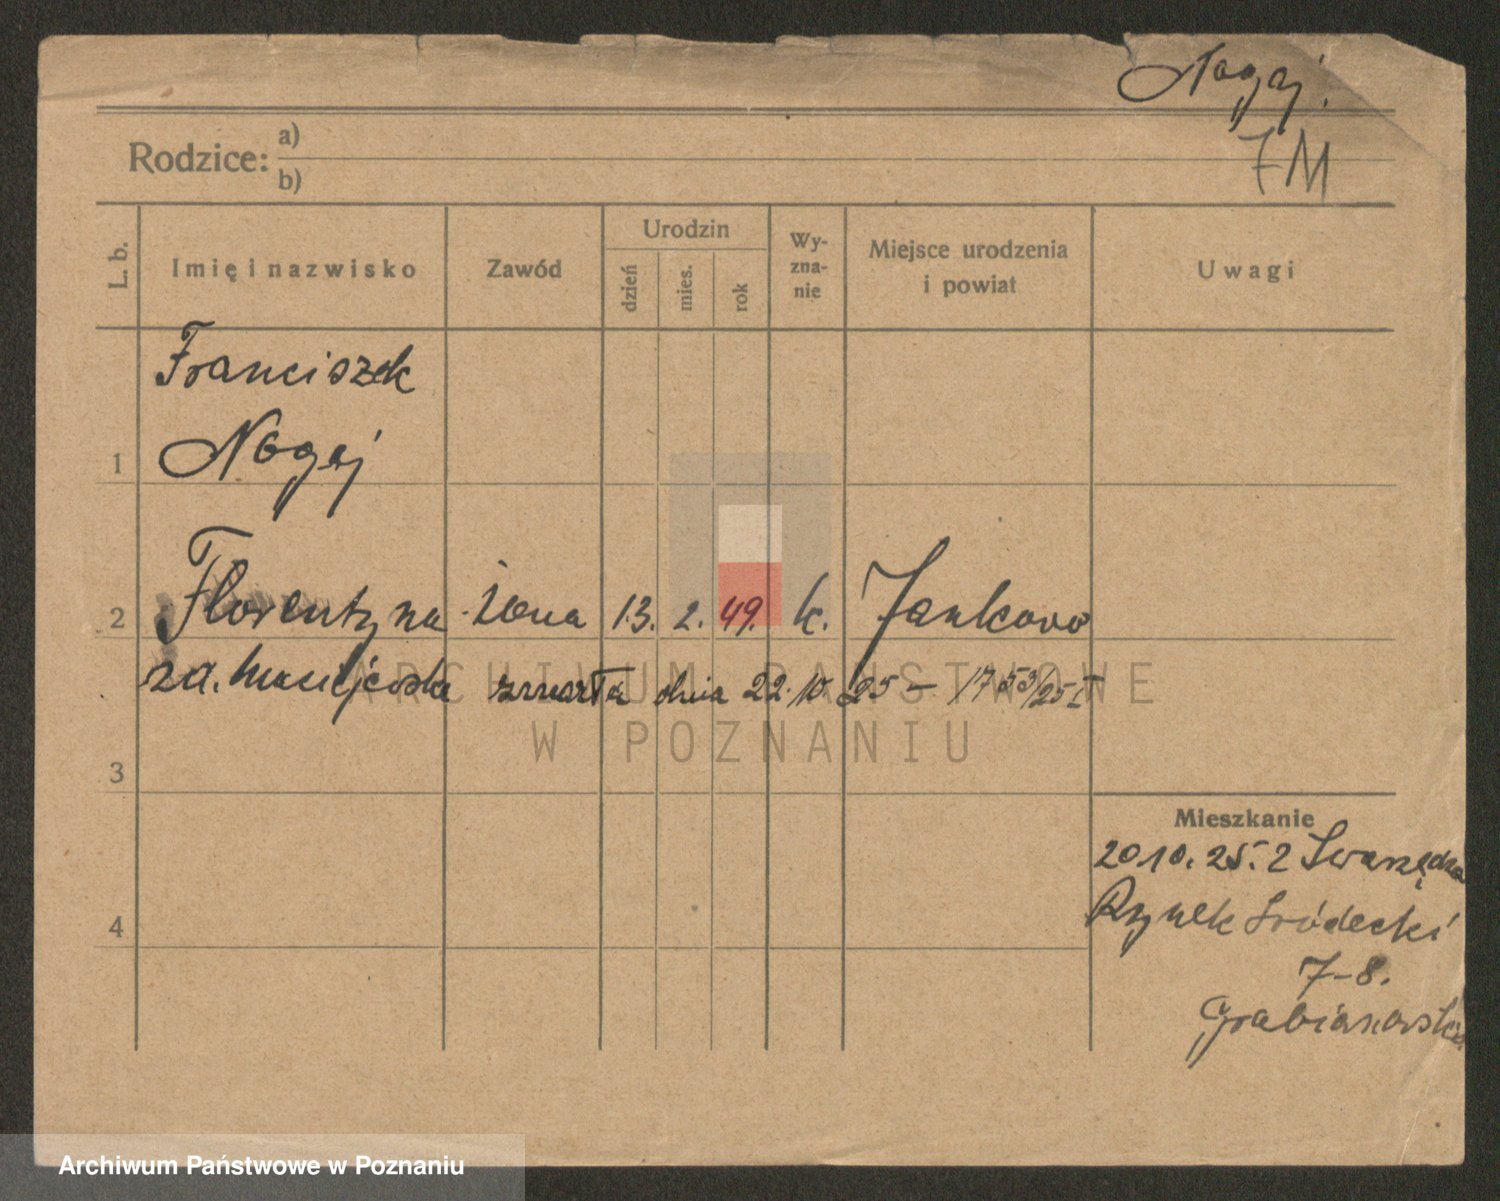 Nogaj.
7M
Rodzice: a)
b)
L. b.
Imię i nazwisko
Zawód
Urodzin
dzień
mies.
rok
Wy-
zna-
nie
Miejsce urodzenia
i powiat
Uwagi
Franciszek
1 Nogaj
2 Florentyna żona 13. 2. 49. k. Jankowo
za. Maciejewska zmarła dnia 22.10.25 – 1753/25 I
ARCHIWUM PAŃSTWOWE
W POZNANIU
3
Mieszkanie
20 10. 25. z Swarzędza
Rynek Śródecki
4
7–8.
Grabianowska
Archiwum Państwowe w Poznaniu